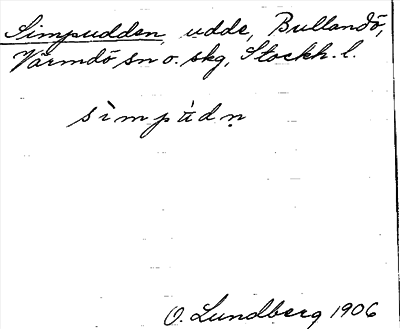 Simpudden, udde, Bullandö,
Värmdö sn o. skg, Stockh. l.
sìmpùdṇ
O. Lundberg 1906